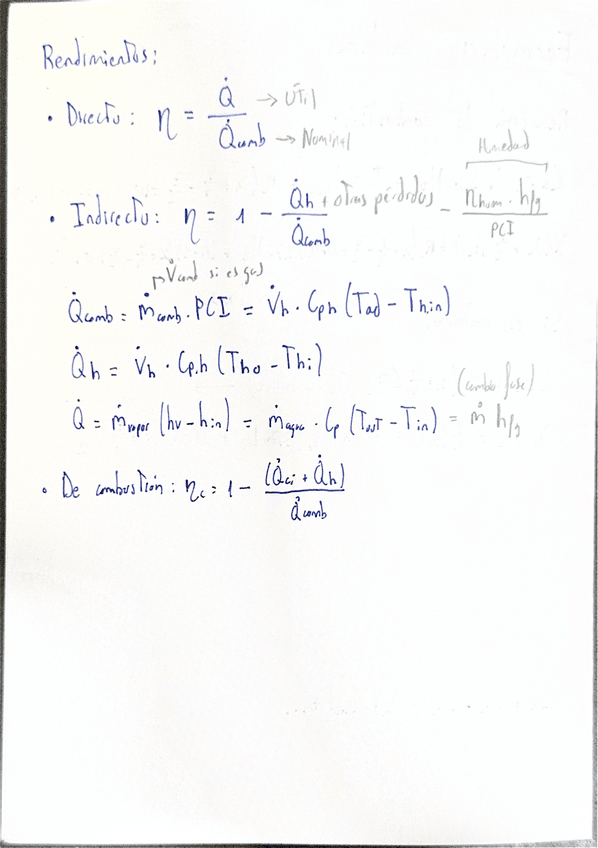 Rendimientos:
• Directo: η = Q̇ / Q̇comb → Útil → Nominal
Humedad
• Indirecto: η = 1 - (Q̇h + otras pérdidas) / Q̇comb - (nhum · hfg) / PCI
V̇comb si es gas
Q̇comb = ṁcomb · PCI = V̇h · Cph (Tad - Th,in)
Q̇h = V̇h · Cp,h (Tho - Thi)
(cambio fase)
Q̇ = ṁvapor (hv - hin) = ṁagua · Cp (Tout - Tin) = ṁ hfg
• De combustión: ηc = 1 - (Q̇ci + Q̇h) / Q̇comb